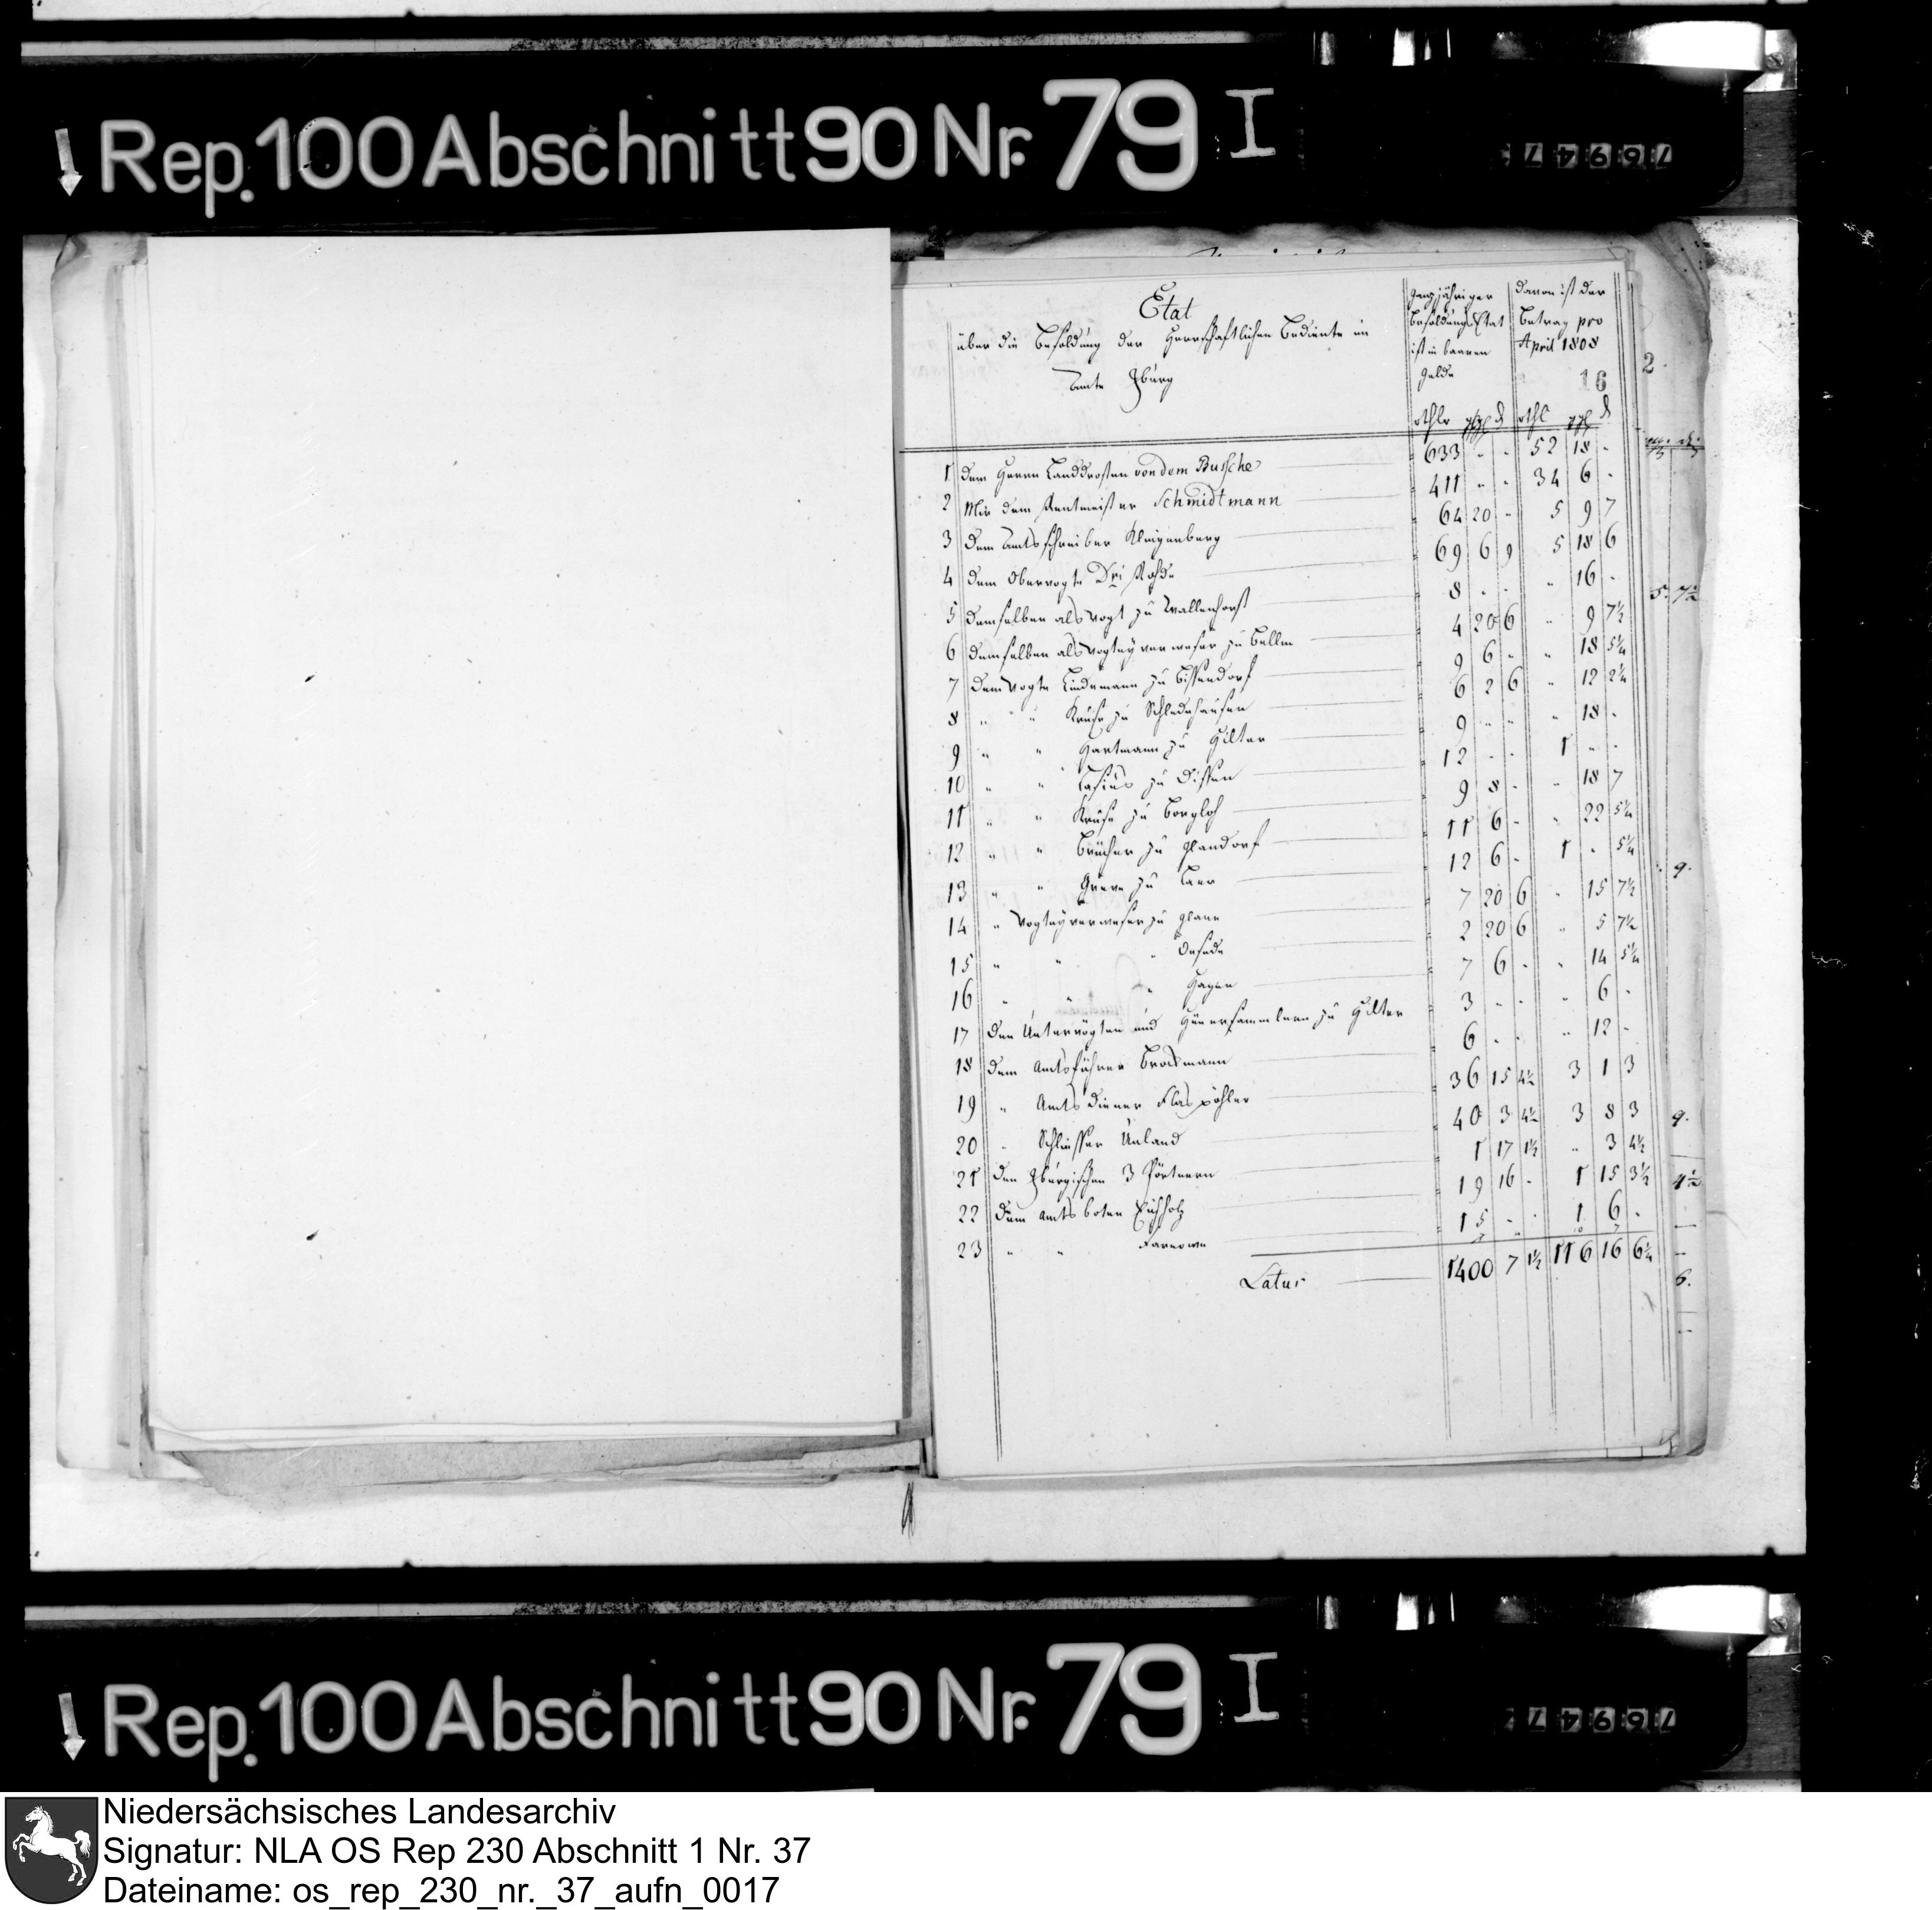 Rep. 100 Abschnitt 90 Nr. 79 I
76947
Etat
über die Besoldung der Herrschaftlichen Bediente im
Amte Iburg
Ganzjähriger
Besoldungs Etat
ist in baaren
Gelde
Davon ist der
Betrag pro
April 1808
16
2.
rthlr ß d rthl ß d
1 Dem Herrn Landdrosten von dem Bussche 633 " " 52 18 -
2 Mir dem Rentmeister Schmidtmann 411 " " 34 6 -
3 Dem Amtsschreiber Klingenberg 64 20 - 5 9 7
4 Dem Obervogte Dri Rohde 69 6 9 5 18 6
5 Demselben als Vogt zu Wallenhorst 8 - - " 16 -
6 Demselben als Vogteyverweser zu Bellm 4 20 6 " 9 7½
7 Dem Vogte Lindemann zu Bissendorf 9 6 - " 18 5¼
8 " " Kruse zu Schledehausen 6 2 6 " 12 2¼
9 " " Hartmann zu Hilter 9 - - " 18 -
10 " " Casius zu Dissen 12 - - 1 " -
11 " " Kruse zu Borgloh 9 8 - " 18 7
12 " " Brücher zu Glandorf 11 6 - " 22 5¼
13 " " Greve zu Laer 12 6 - 1 " 5¼
14 " Vogteyverweser zu Glane 7 20 6 " 15 7½
15 " " " Oesede 2 20 6 " 5 7½
16 " " " Hagen 7 6 - " 14 5¼
17 Den Untervögten und Hünersammlern zu Hilter 3 - - " 6 -
18 Dem Amtsführer Brockmann 6 - - " 12 -
19 " Amtsdiener Flaspöhler 36 15 4½ 3 1 3
20 " Schliesser Unland 40 3 4½ 3 8 3
21 Den Iburgischen 3 Pörtnern 1 17 1½ " 3 4½
22 Dem Amtsboten Eichholz 19 16 - 1 15 3½
23 " " Farnown 15 - - 1 6 -
Latus 1400 7 1½ 116 16 6¼
Rep. 100 Abschnitt 90 Nr. 79 I
76947
Niedersächsisches Landesarchiv
Signatur: NLA OS Rep 230 Abschnitt 1 Nr. 37
Dateiname: os_rep_230_nr._37_aufn_0017